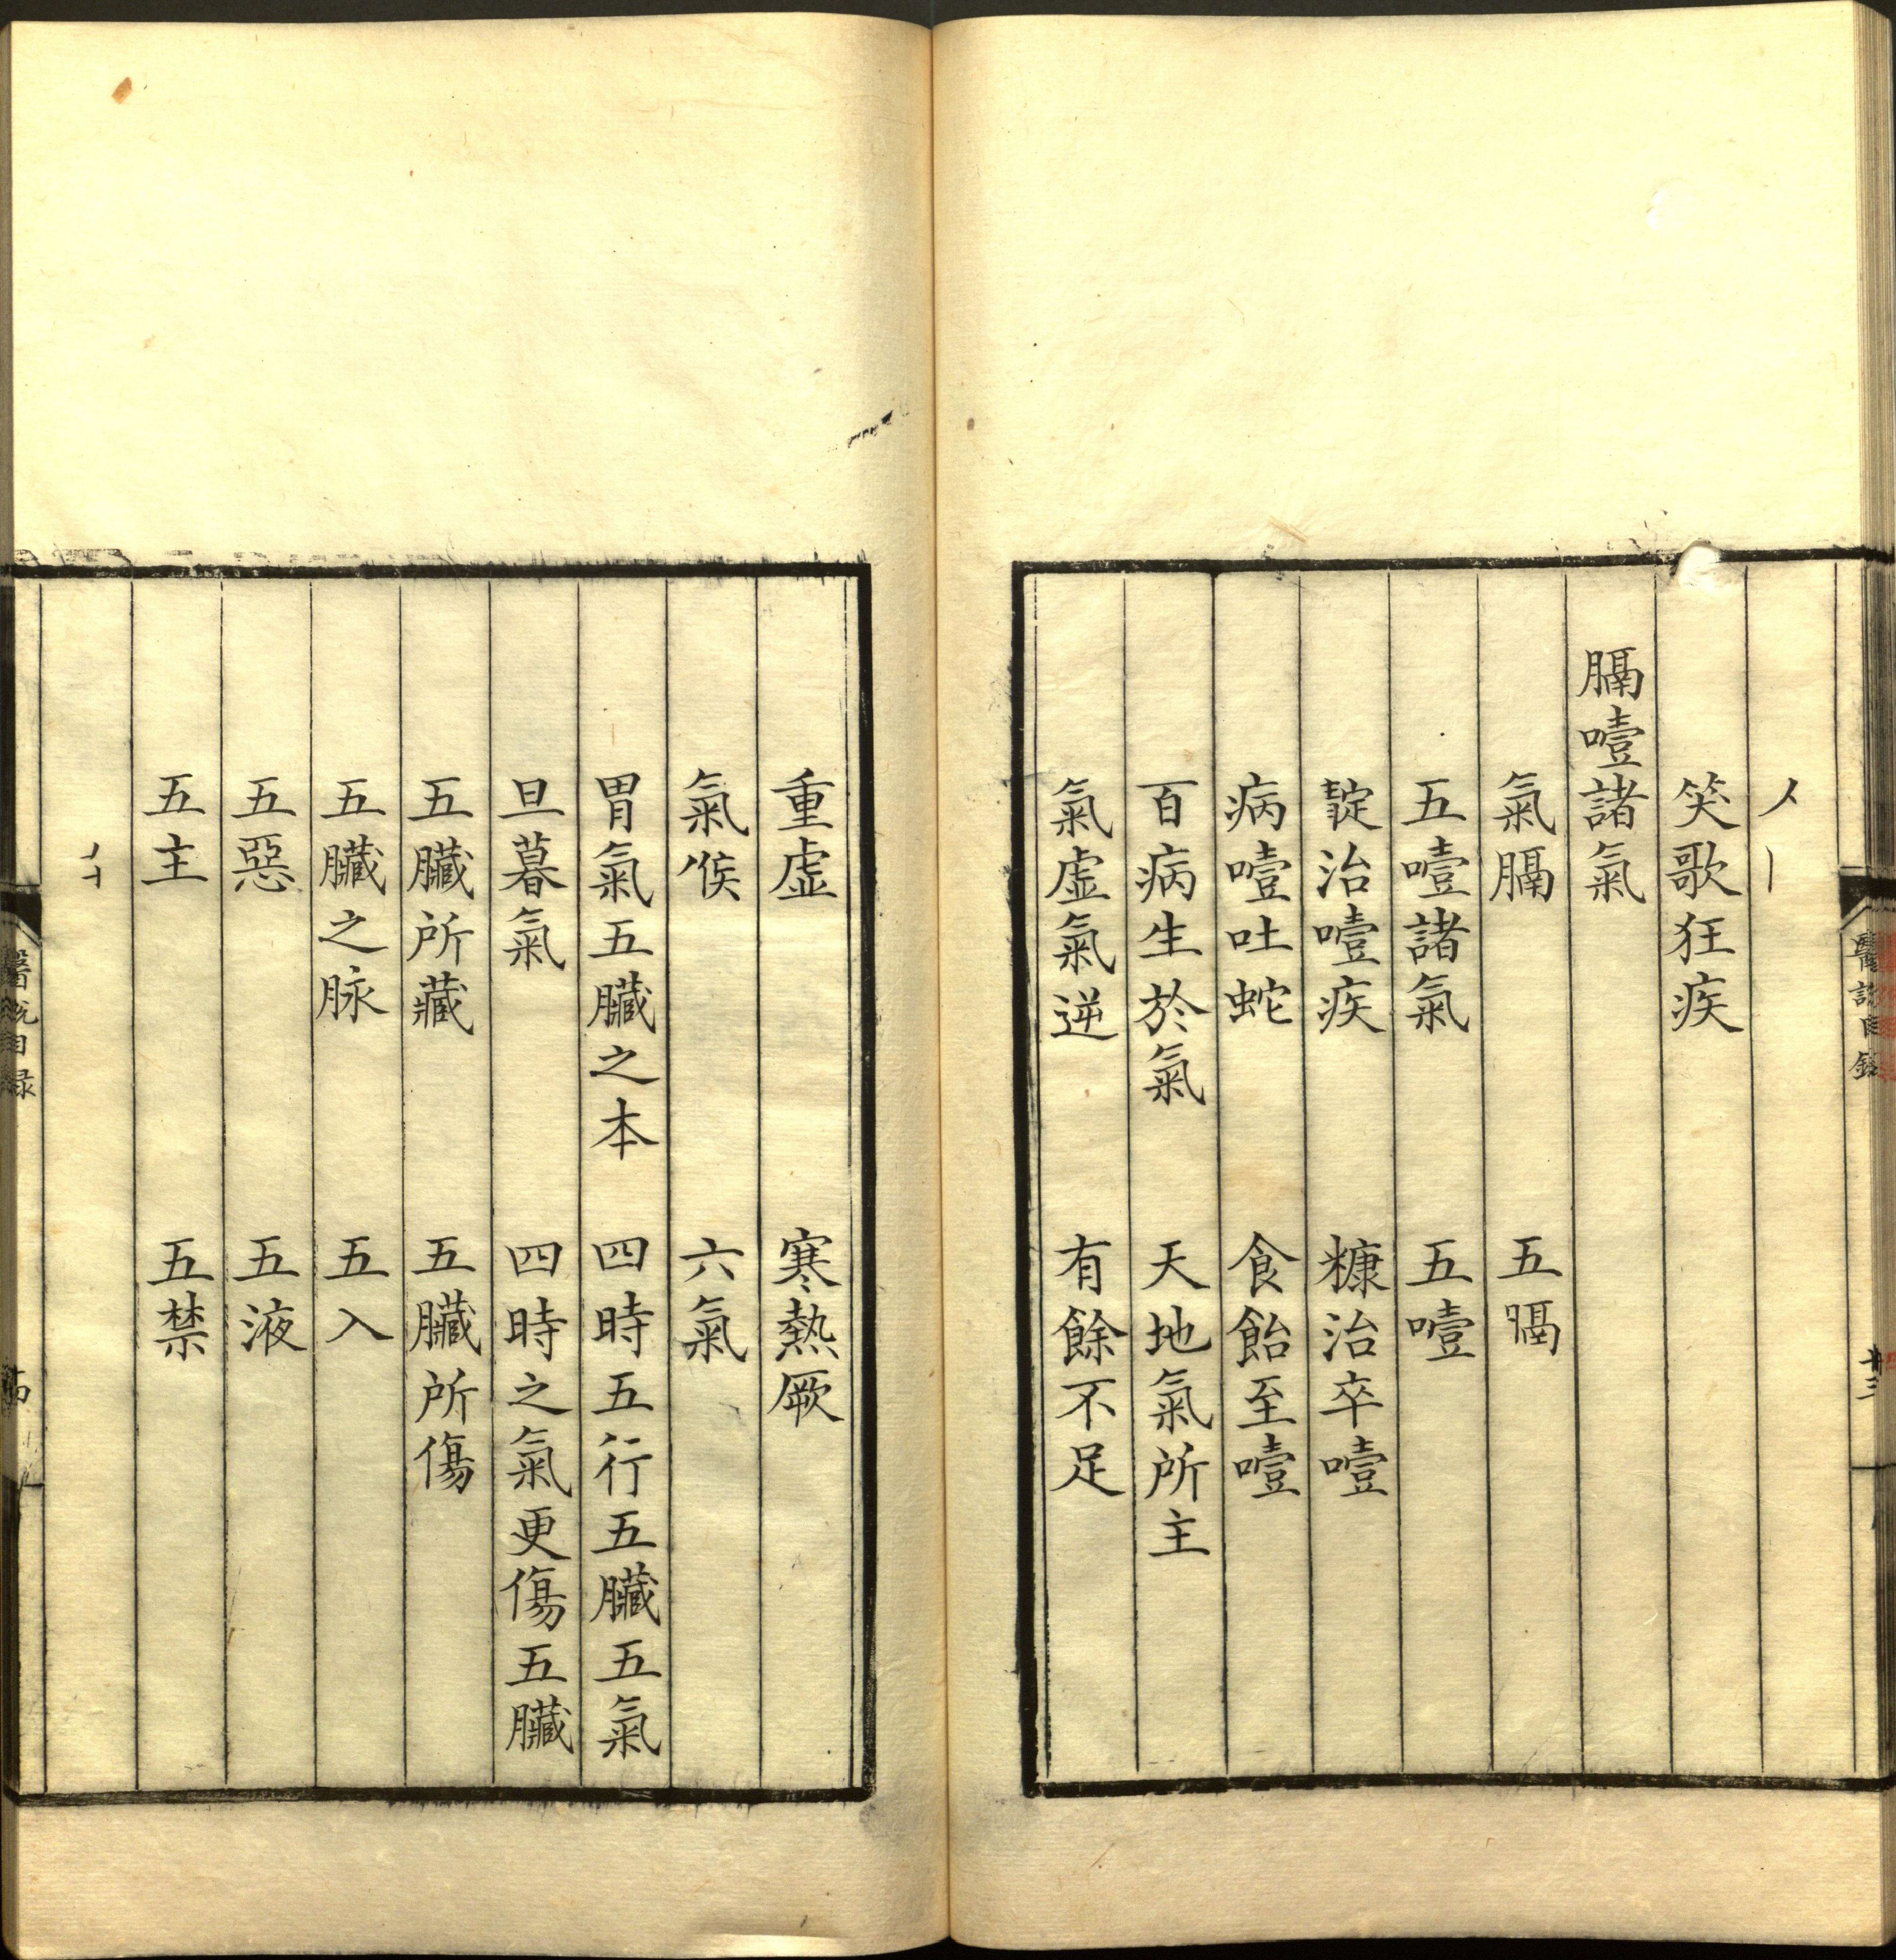 醫說目錄
笑歌狂疾
膈噎諸氣
氣膈　五嗝
五噎諸氣　五噎
靛治噎疾　糠治卒噎
病噎吐蛇　食飴至噎
百病生於氣　天地氣所主
氣虛氣逆　有餘不足
重虛　寒熱厥
氣候　六氣
胃氣五臟之本　四時五行五臟五氣
旦暮氣　四時之氣更傷五臟
五臟所藏　五臟所傷
五臟之脉　五入
五惡　五液
五主　五禁
醫說目錄